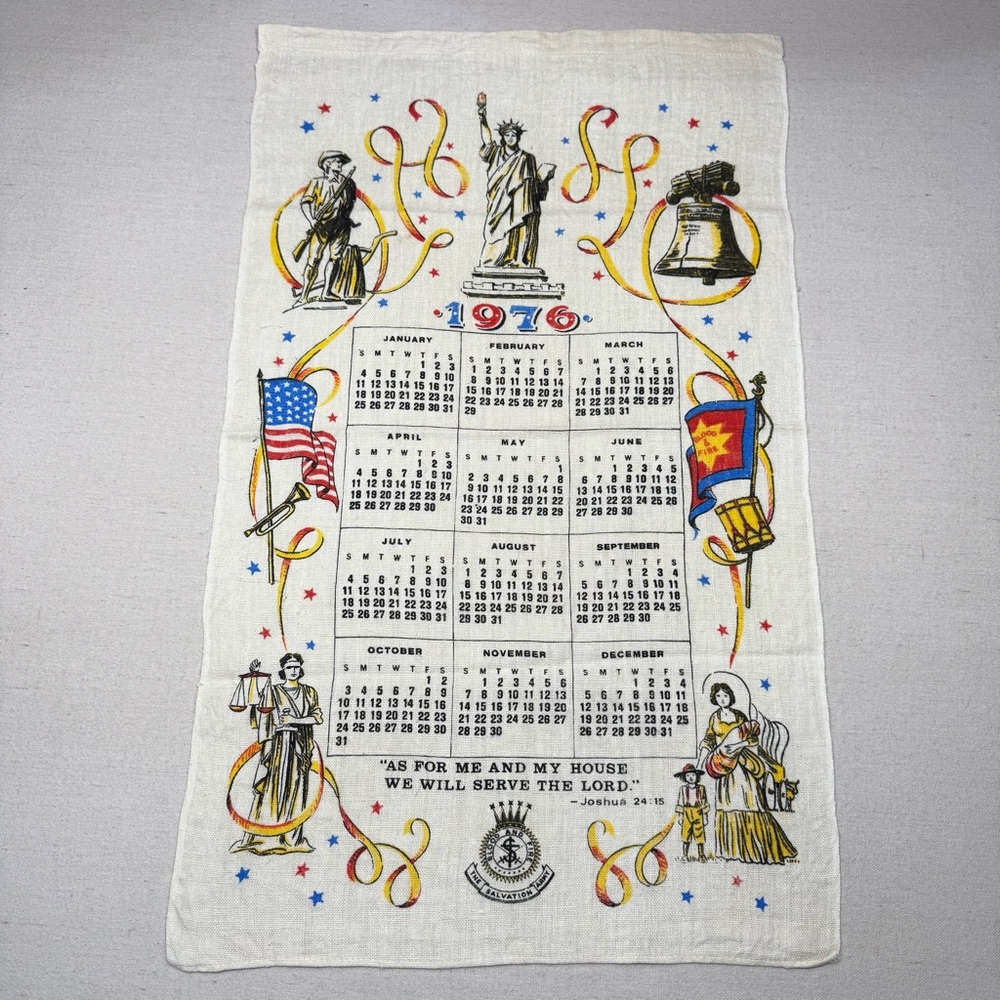 1976
JANUARY
S M T W T F S
1 2 3
4 5 6 7 8 9 10
11 12 13 14 15 16 17
18 19 20 21 22 23 24
25 26 27 28 29 30 31
FEBRUARY
S M T W T F S
1 2 3 4 5 6 7
8 9 10 11 12 13 14
15 16 17 18 19 20 21
22 23 24 25 26 27 28
29
MARCH
S M T W T F S
1 2 3 4 5 6
7 8 9 10 11 12 13
14 15 16 17 18 19 20
21 22 23 24 25 26 27
28 29 30 31
BLOOD
&
FIRE
APRIL
S M T W T F S
1 2 3
4 5 6 7 8 9 10
11 12 13 14 15 16 17
18 19 20 21 22 23 24
25 26 27 28 29 30
MAY
S M T W T F S
1
2 3 4 5 6 7 8
9 10 11 12 13 14 15
16 17 18 19 20 21 22
23 24 25 26 27 28 29
30 31
JUNE
S M T W T F S
1 2 3 4 5
6 7 8 9 10 11 12
13 14 15 16 17 18 19
20 21 22 23 24 25 26
27 28 29 30
JULY
S M T W T F S
1 2 3
4 5 6 7 8 9 10
11 12 13 14 15 16 17
18 19 20 21 22 23 24
25 26 27 28 29 30 31
AUGUST
S M T W T F S
1 2 3 4 5 6 7
8 9 10 11 12 13 14
15 16 17 18 19 20 21
22 23 24 25 26 27 28
29 30 31
SEPTEMBER
S M T W T F S
1 2 3 4
5 6 7 8 9 10 11
12 13 14 15 16 17 18
19 20 21 22 23 24 25
26 27 28 29 30
OCTOBER
S M T W T F S
1 2
3 4 5 6 7 8 9
10 11 12 13 14 15 16
17 18 19 20 21 22 23
24 25 26 27 28 29 30
31
NOVEMBER
S M T W T F S
1 2 3 4 5 6
7 8 9 10 11 12 13
14 15 16 17 18 19 20
21 22 23 24 25 26 27
28 29 30
DECEMBER
S M T W T F S
1 2 3 4
5 6 7 8 9 10 11
12 13 14 15 16 17 18
19 20 21 22 23 24 25
26 27 28 29 30 31
"AS FOR ME AND MY HOUSE
WE WILL SERVE THE LORD."
–Joshua 24:15
BLOOD AND FIRE
S
THE SALVATION ARMY